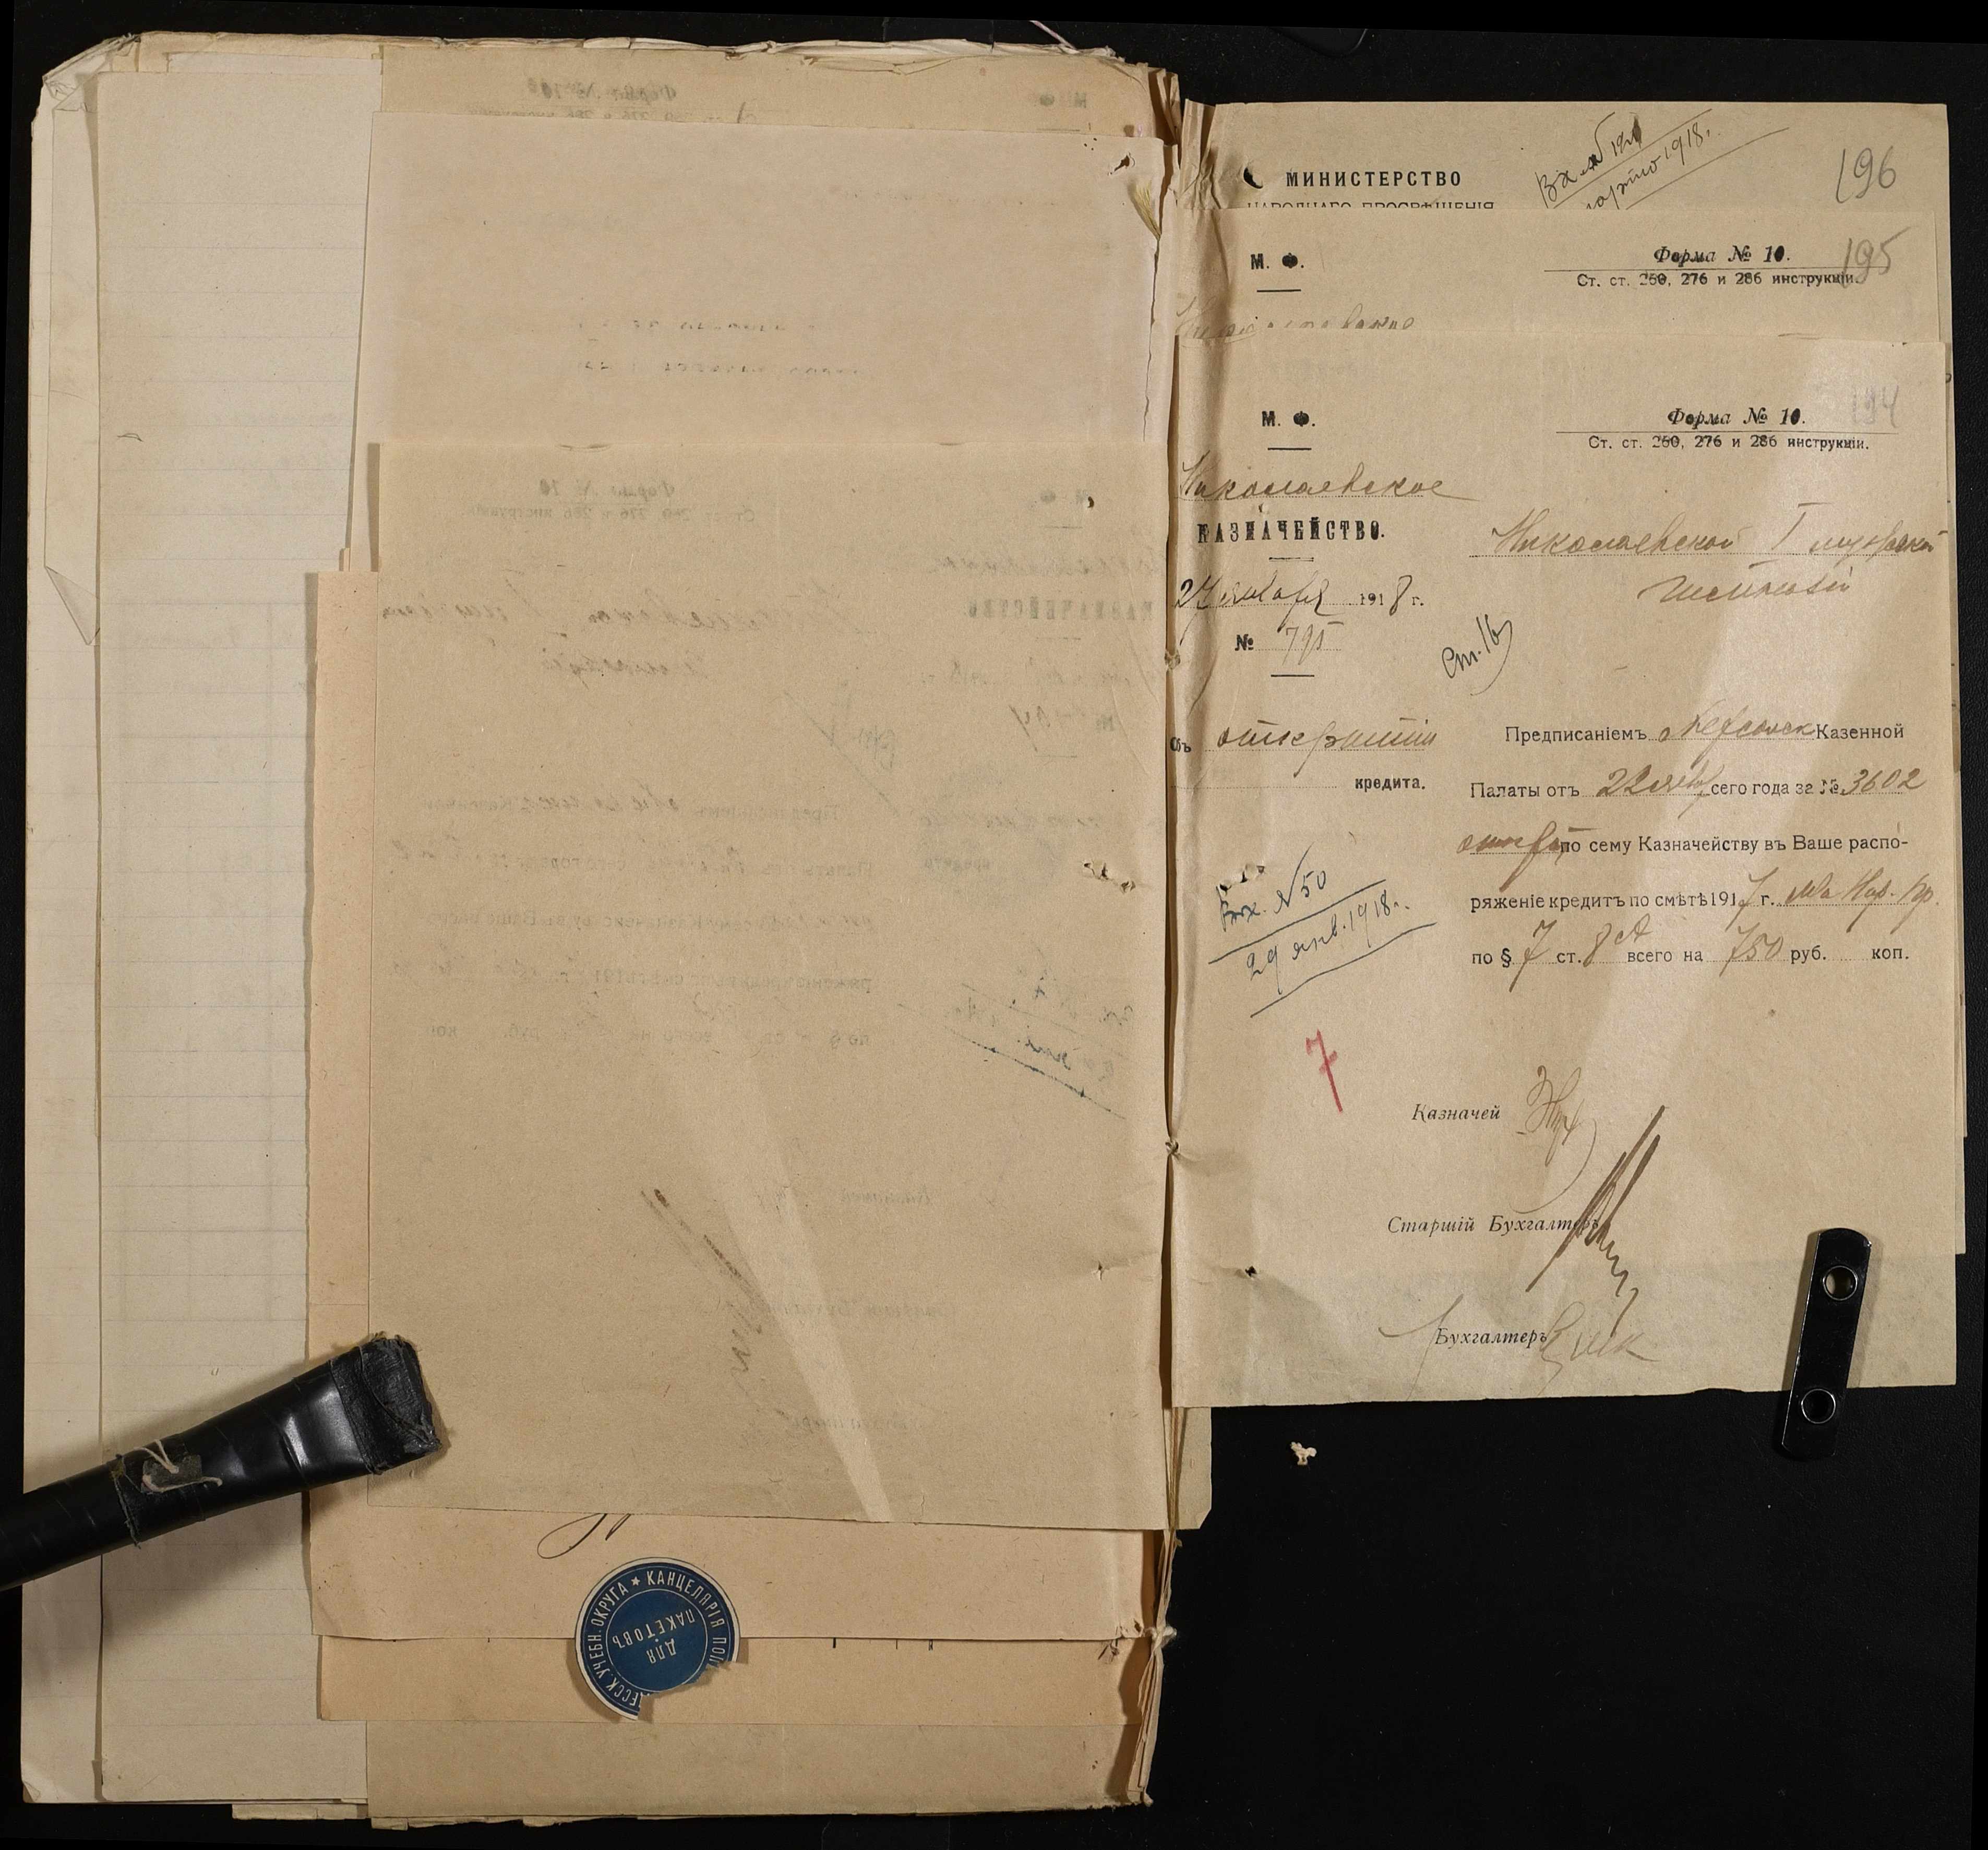 МИНИСТЕРСТВО
НАРОДНАГО ПРОСВѢЩЕНІЯ
1918.
196
М. Ф.
Форма № 10.
195
Ст. ст. 260, 276 и 286 инструкціи.
М. Ф.
Форма № 10.
194
Ст. ст. 260, 276 и 286 инструкціи.
Николаевское
КАЗНАЧЕЙСТВО.
Николаевской I мужской
гимназіи
24 января 1918 г.
№ 795
Ст. 16
Объ открытіи
кредита.
Предписаніемъ Херсонск Казенной
Палаты отъ 22 янв сего года за № 3602
открытъ по сему Казначейству въ Ваше распо-
ряженіе кредитъ по смѣтѣ 1917 г. М-ва Нар. Пр.
по § 7 ст. 8 всего на 750 руб. коп.
Вх. № 50
29 янв. 1918 г.
7
Казначей
Старшій Бухгалтеръ
Бухгалтеръ
КАНЦЕЛЯРІЯ ПОП
ЕССК. УЧЕБН. ОКРУГА
ДЛЯ
ПАКЕТОВЪ